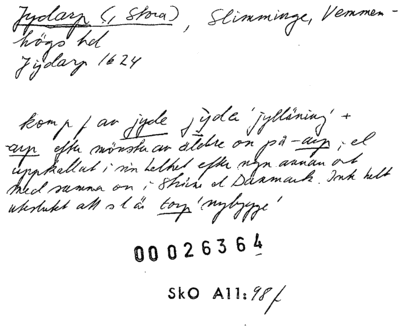 Jydarp (, Stora), Slimminge, Vemmen-
högs hd
Jÿdarp 1624
komp f av jyde jyda 'jyllänning' +
-arp efter mönster av äldre on på -arp; el
uppkallat i sin helhet efter ngn annan ort
med samma on i Skåne el Danmark. Inte helt
uteslutet att sl är torp 'nybygge'
00026364
SkO A11:98f